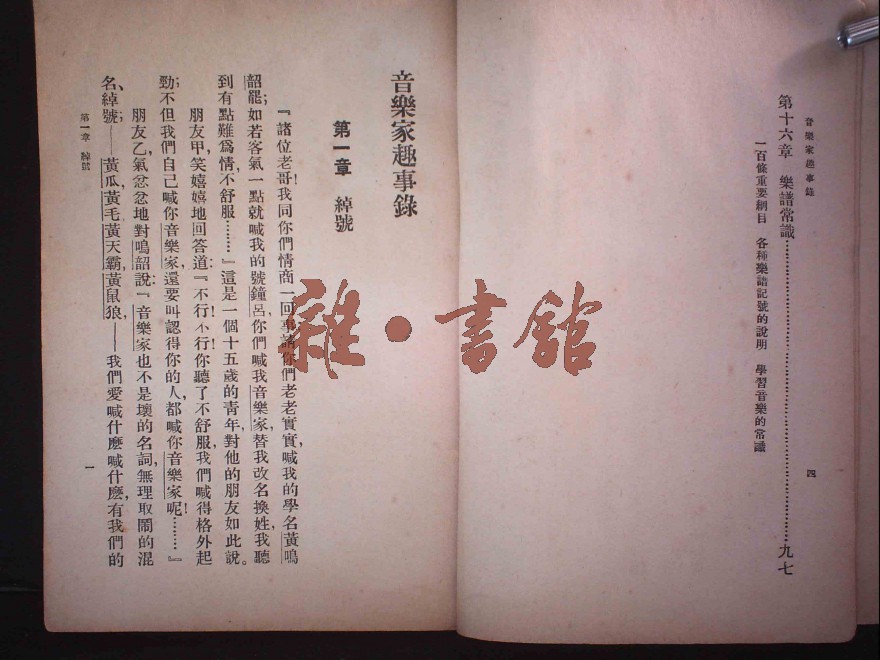 音樂家趣事錄
第十六章 樂譜常識……九七
一百條重要綱目 各種樂譜記號的說明 學習音樂的常識
四
音樂家趣事錄
第一章 綽號
『諸位老哥!我同你們情商一回事,請你們老老實實,喊我的學名黃鳴
韶罷;如若客氣一點,就喊我的號鐘呂,你們喊我音樂家,替我改名換姓,我聽
到有點難爲情,不舒服………』這是一個十五歲的靑年,對他的朋友如此說。
朋友甲,笑嬉嬉地回答道:『不行!不行!你聽了不舒服,我們喊得格外起
勁;不但我們自己喊你音樂家,還要叫認得你的人,都喊你音樂家呢!………』
朋友乙,氣忿忿地對鳴韶說:『音樂家也不是壞的名詞,無理取鬧的混
名、綽號;——黃瓜,黃毛,黃天霸,黃鼠狼,——我們愛喊什麼喊什麼,有我們的
第一章 綽號
一
雜·書館